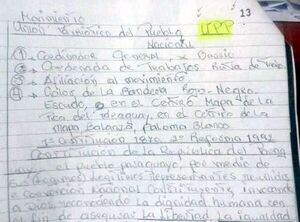 13
Movimiento
Union Patriótica del Pueblo UPP
Nacional
1 Cordinador General x Barrio
2 de Trabajos
3 Afiliación al movimiento
4 Color de la Bandera Rojo-Negro
Escudo, en el Centro Mapa de la
del Paraguay, en el Centro de
Mapa Balanza, Paloma Blanca
1º Constitución 1870, 2º Reforma 1992
Constitución de la República del
Pueblo paraguayo, por medio de
sus legítimos representantes reunidos
Convención Nacional Constituyente, invocando
a Dios, reconociendo la dignidad humana con
el fin de asegurar la libertad, la igualdad